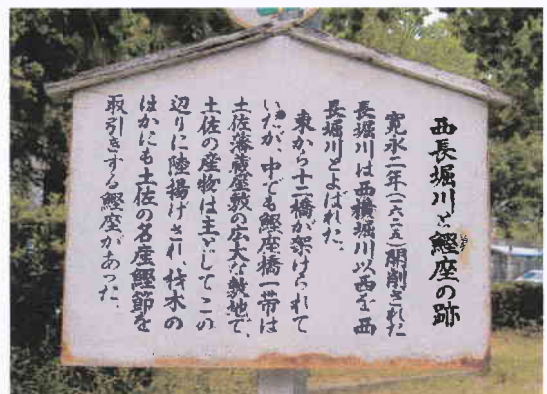 西長堀川と鰹座の跡
寛永二年(一六二五)開削された
長堀川は西横堀川以西を西
長堀川とよばれた。
東から十二橋が架けられて
いたが、中でも鰹座橋一帯は
土佐藩蔵屋敷の広大な敷地で、
土佐の産物は主としてこの
辺りに陸揚げされ、材木の
ほかにも土佐の名産鰹節を
取引きする鰹座があった。